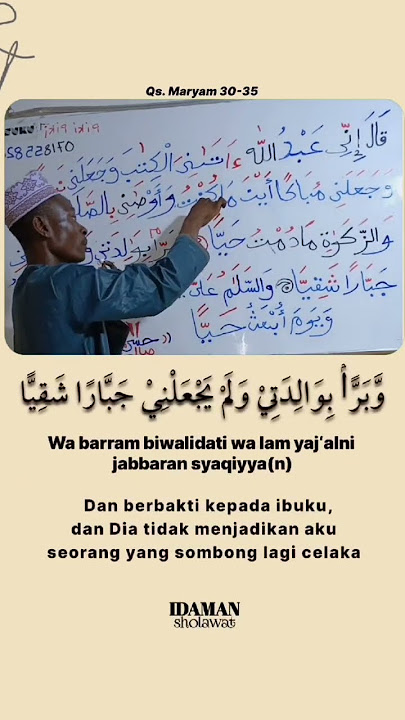 Qs. Maryam 30-35
قَالَ إِنِّي عَبْدُ اللَّهِ ءَاتَىٰنِيَ الْكِتَٰبَ وَجَعَلَنِي
وَجَعَلَنِي مُبَارَكًا أَيْنَ مَا كُنْتُ وَأَوْصَٰنِي بِالصَّلَ
وَالزَّكَوٰةِ مَا دُمْتُ حَيًّا
جَبَّارًا شَقِيًّا وَالسَّلَٰمُ عَلَيَّ
وَيَوْمَ أُبْعَثُ حَيًّا
وَّبَرًّاۢ بِوَالِدَتِيْ وَلَمْ يَجْعَلْنِيْ جَبَّارًا شَقِيًّا
Wa barram biwalidati wa lam yaj'alni
jabbaran syaqiyya(n)
Dan berbakti kepada ibuku,
dan Dia tidak menjadikan aku
seorang yang sombong lagi celaka
IDAMAN
sholawat